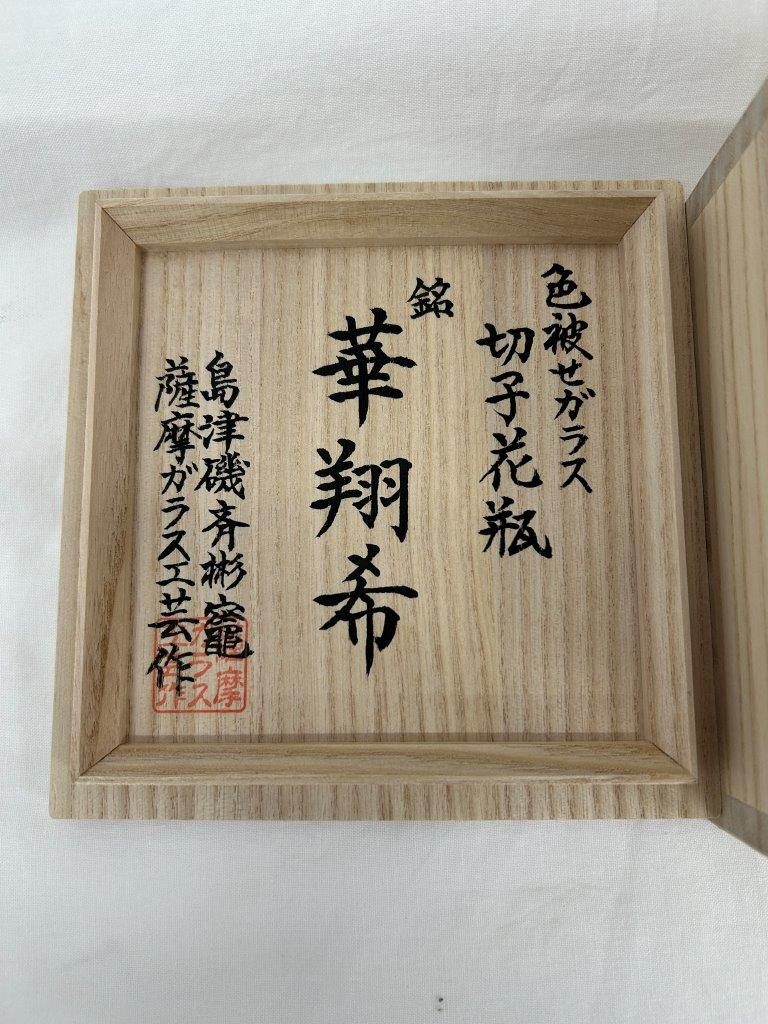 色被せガラス
切子花瓶
銘
華翔希
島津磯斉彬竈
薩摩ガラス工芸作